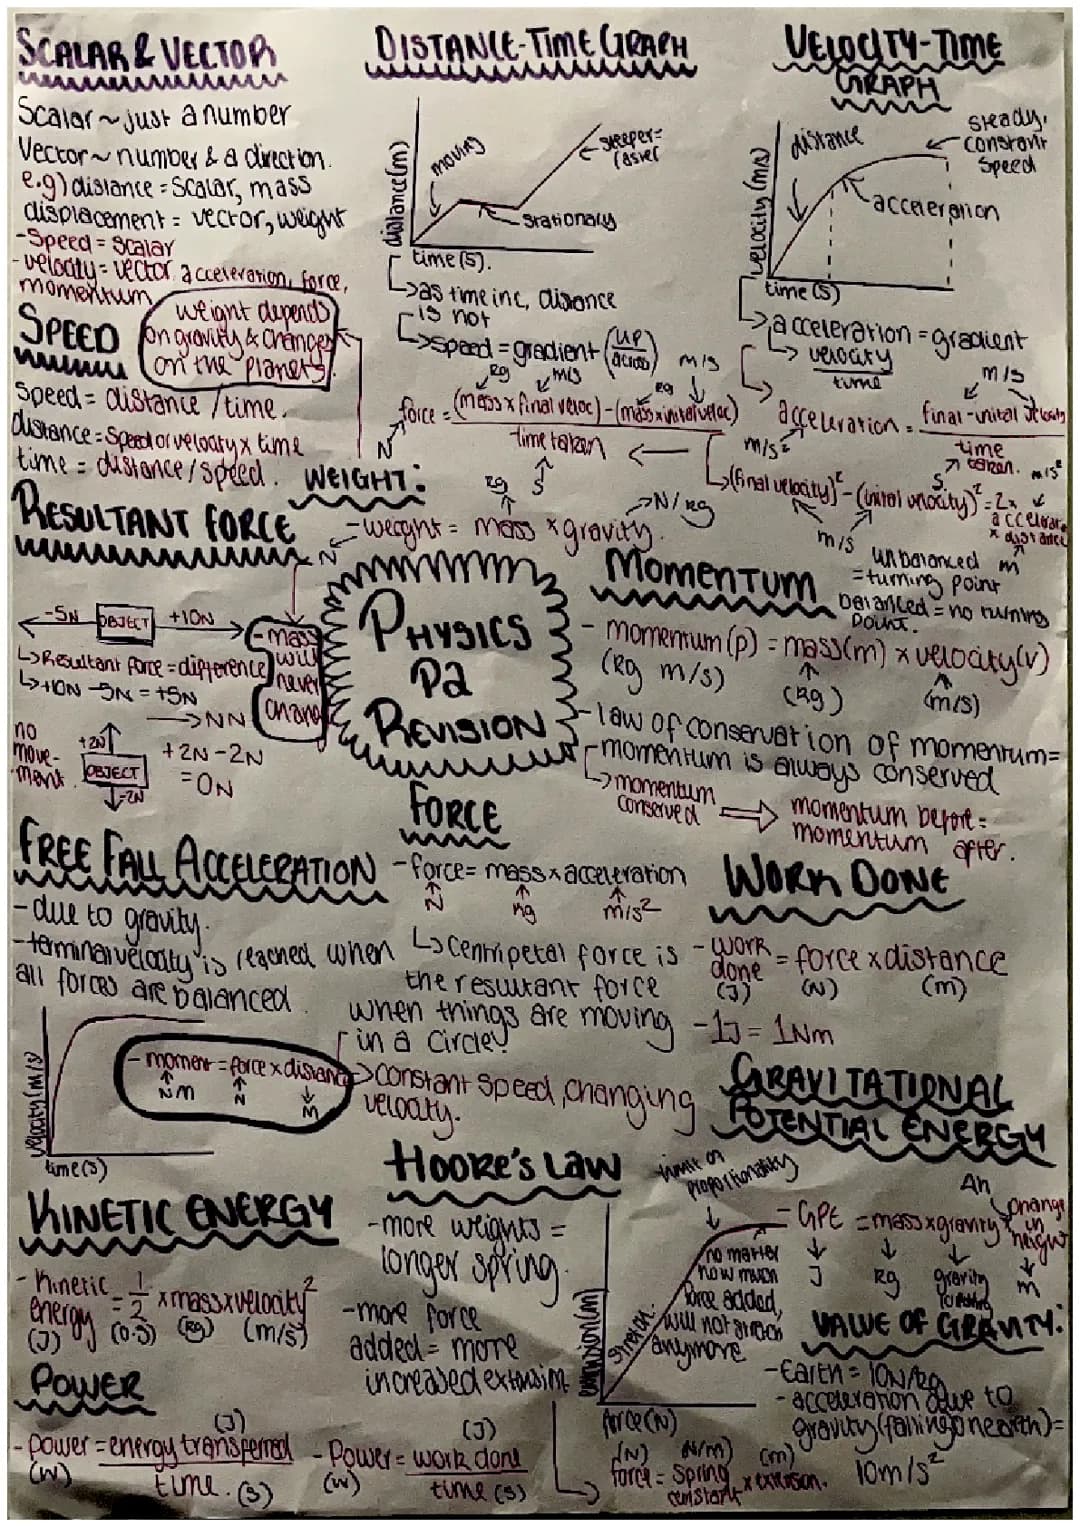 SCALAR & VECTOR
Scalar ~ just a number
Vector ~ number & a direction.
e.g) distance = scalar, mass
displacement = vector, weight
- Speed = scalar
- velocity = vector, acceleration, force,
momentum
weight depends
on gravity & changes
on the planets.
SPEED
Speed = distance / time.
distance = speed or velocity x time
time = distance / speed.
DISTANCE-TIME GRAPH
distance (m)
moving
steeper =
faster
stationary
time (s).
as time inc, distance
is not
speed = gradient (up/across)
VELOCITY-TIME
GRAPH
velocity (m/s)
distance
steady,
constant
speed
acceleration
time (s)
acceleration = gradient
velocity
time
kg m/s kg m/s
force = (mass x final veloc) - (mass x inital veloc)
time taken
N
s
m/s
acceleration = final - inital velocity
time
taken.
m/s²
s.
(final velocity)² - (inital velocity)² = 2 x
accelerat
x distance
m/s
m/s²
m
WEIGHT:
- weight = mass x gravity.
N
kg
N/kg
RESULTANT FORCE
-5N OBJECT +10N
Resultant force = difference
+10N - 5N = +5N
NN
no
move-
ment.
+2N
OBJECT
-2N
+2N - 2N
= 0N
- mass
will
never
change
PHYSICS
P2
REVISION
MOMENTUM
unbalanced
= turning point
balanced = no turning
point.
- momentum (p) = mass (m) x velocity (v)
(kg m/s) (kg) (m/s)
- law of conservation of momentum =
momentum is always conserved
momentum
conserved
momentum before =
momentum after.
FREE FALL ACCELERATION
- due to gravity.
- terminal velocity is reached when
all forces are balanced.
velocity (m/s)
time (s)
- moment = force x distance
Nm N M
FORCE
- force = mass x acceleration
N kg m/s²
centripetal force is
the resultant force
when things are moving
in a circle!
constant speed, changing
velocity.
WORK DONE
- work
done = force x distance
(J) (N) (m)
- 1J = 1Nm
GRAVITATIONAL
POTENTIAL ENERGY
Δh
- GPE = mass x gravity x change
in
height
J kg gravity m
KINETIC ENERGY
- Kinetic
energy = 1/2 x mass x velocity²
(J) (0.5) (kg) (m/s)
HOOKE'S LAW
- more weights =
longer spring.
- more force
added = more
increased extension
limit of
proportionality
no matter
how much
force added,
will not stretch
anymore
stretch.
extension (m)
force (N)
(N) (N/m) (m)
force = spring
constant x extension.
VALUE OF GRAVITY:
- Earth = 10N/kg
- acceleration due to
gravity (falling on earth) =
10m/s²
POWER
(J)
- power = energy transferred
(W) time. (s)
(J)
- Power = work done
(W) time (s)